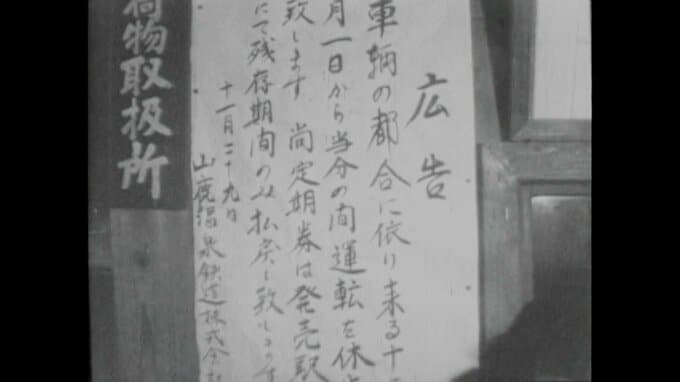 広告
車輌の都合に依り来る十
月一日から当分の間運転を休
致します 尚定期券は発売駅
にて残存期間のみ払戻し致します
十一月二十九日
山鹿温泉鉄道株式会
荷物取扱所